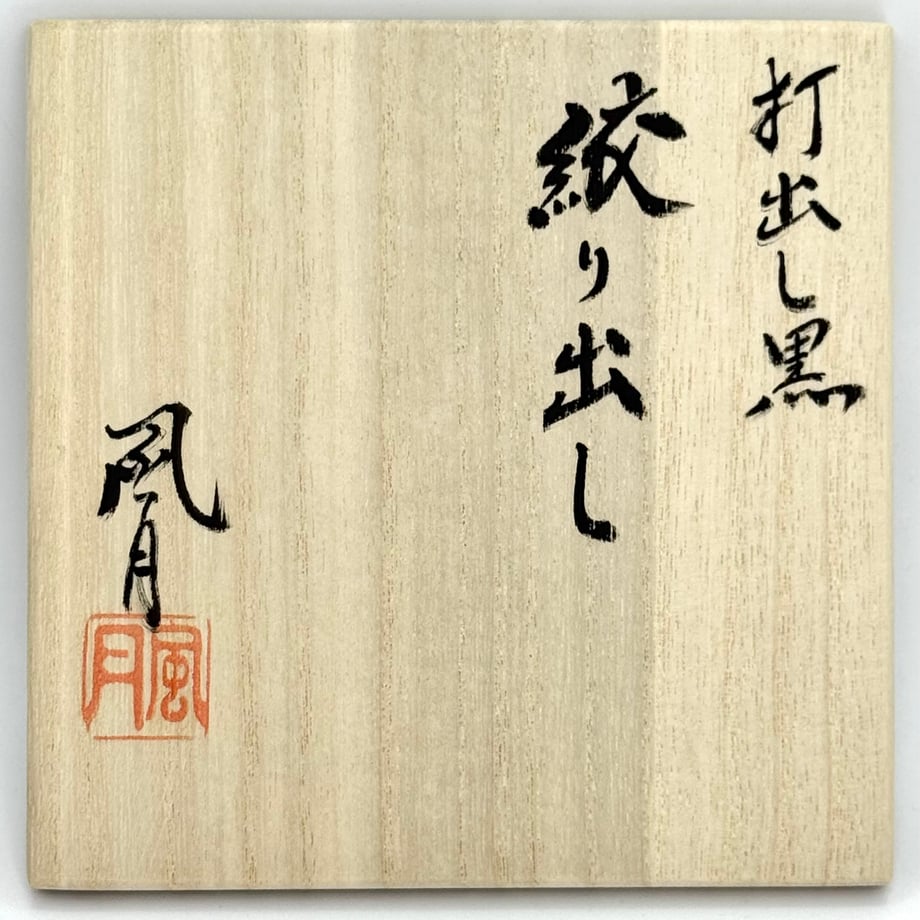 打出し黒
絞り出し
風月
風月